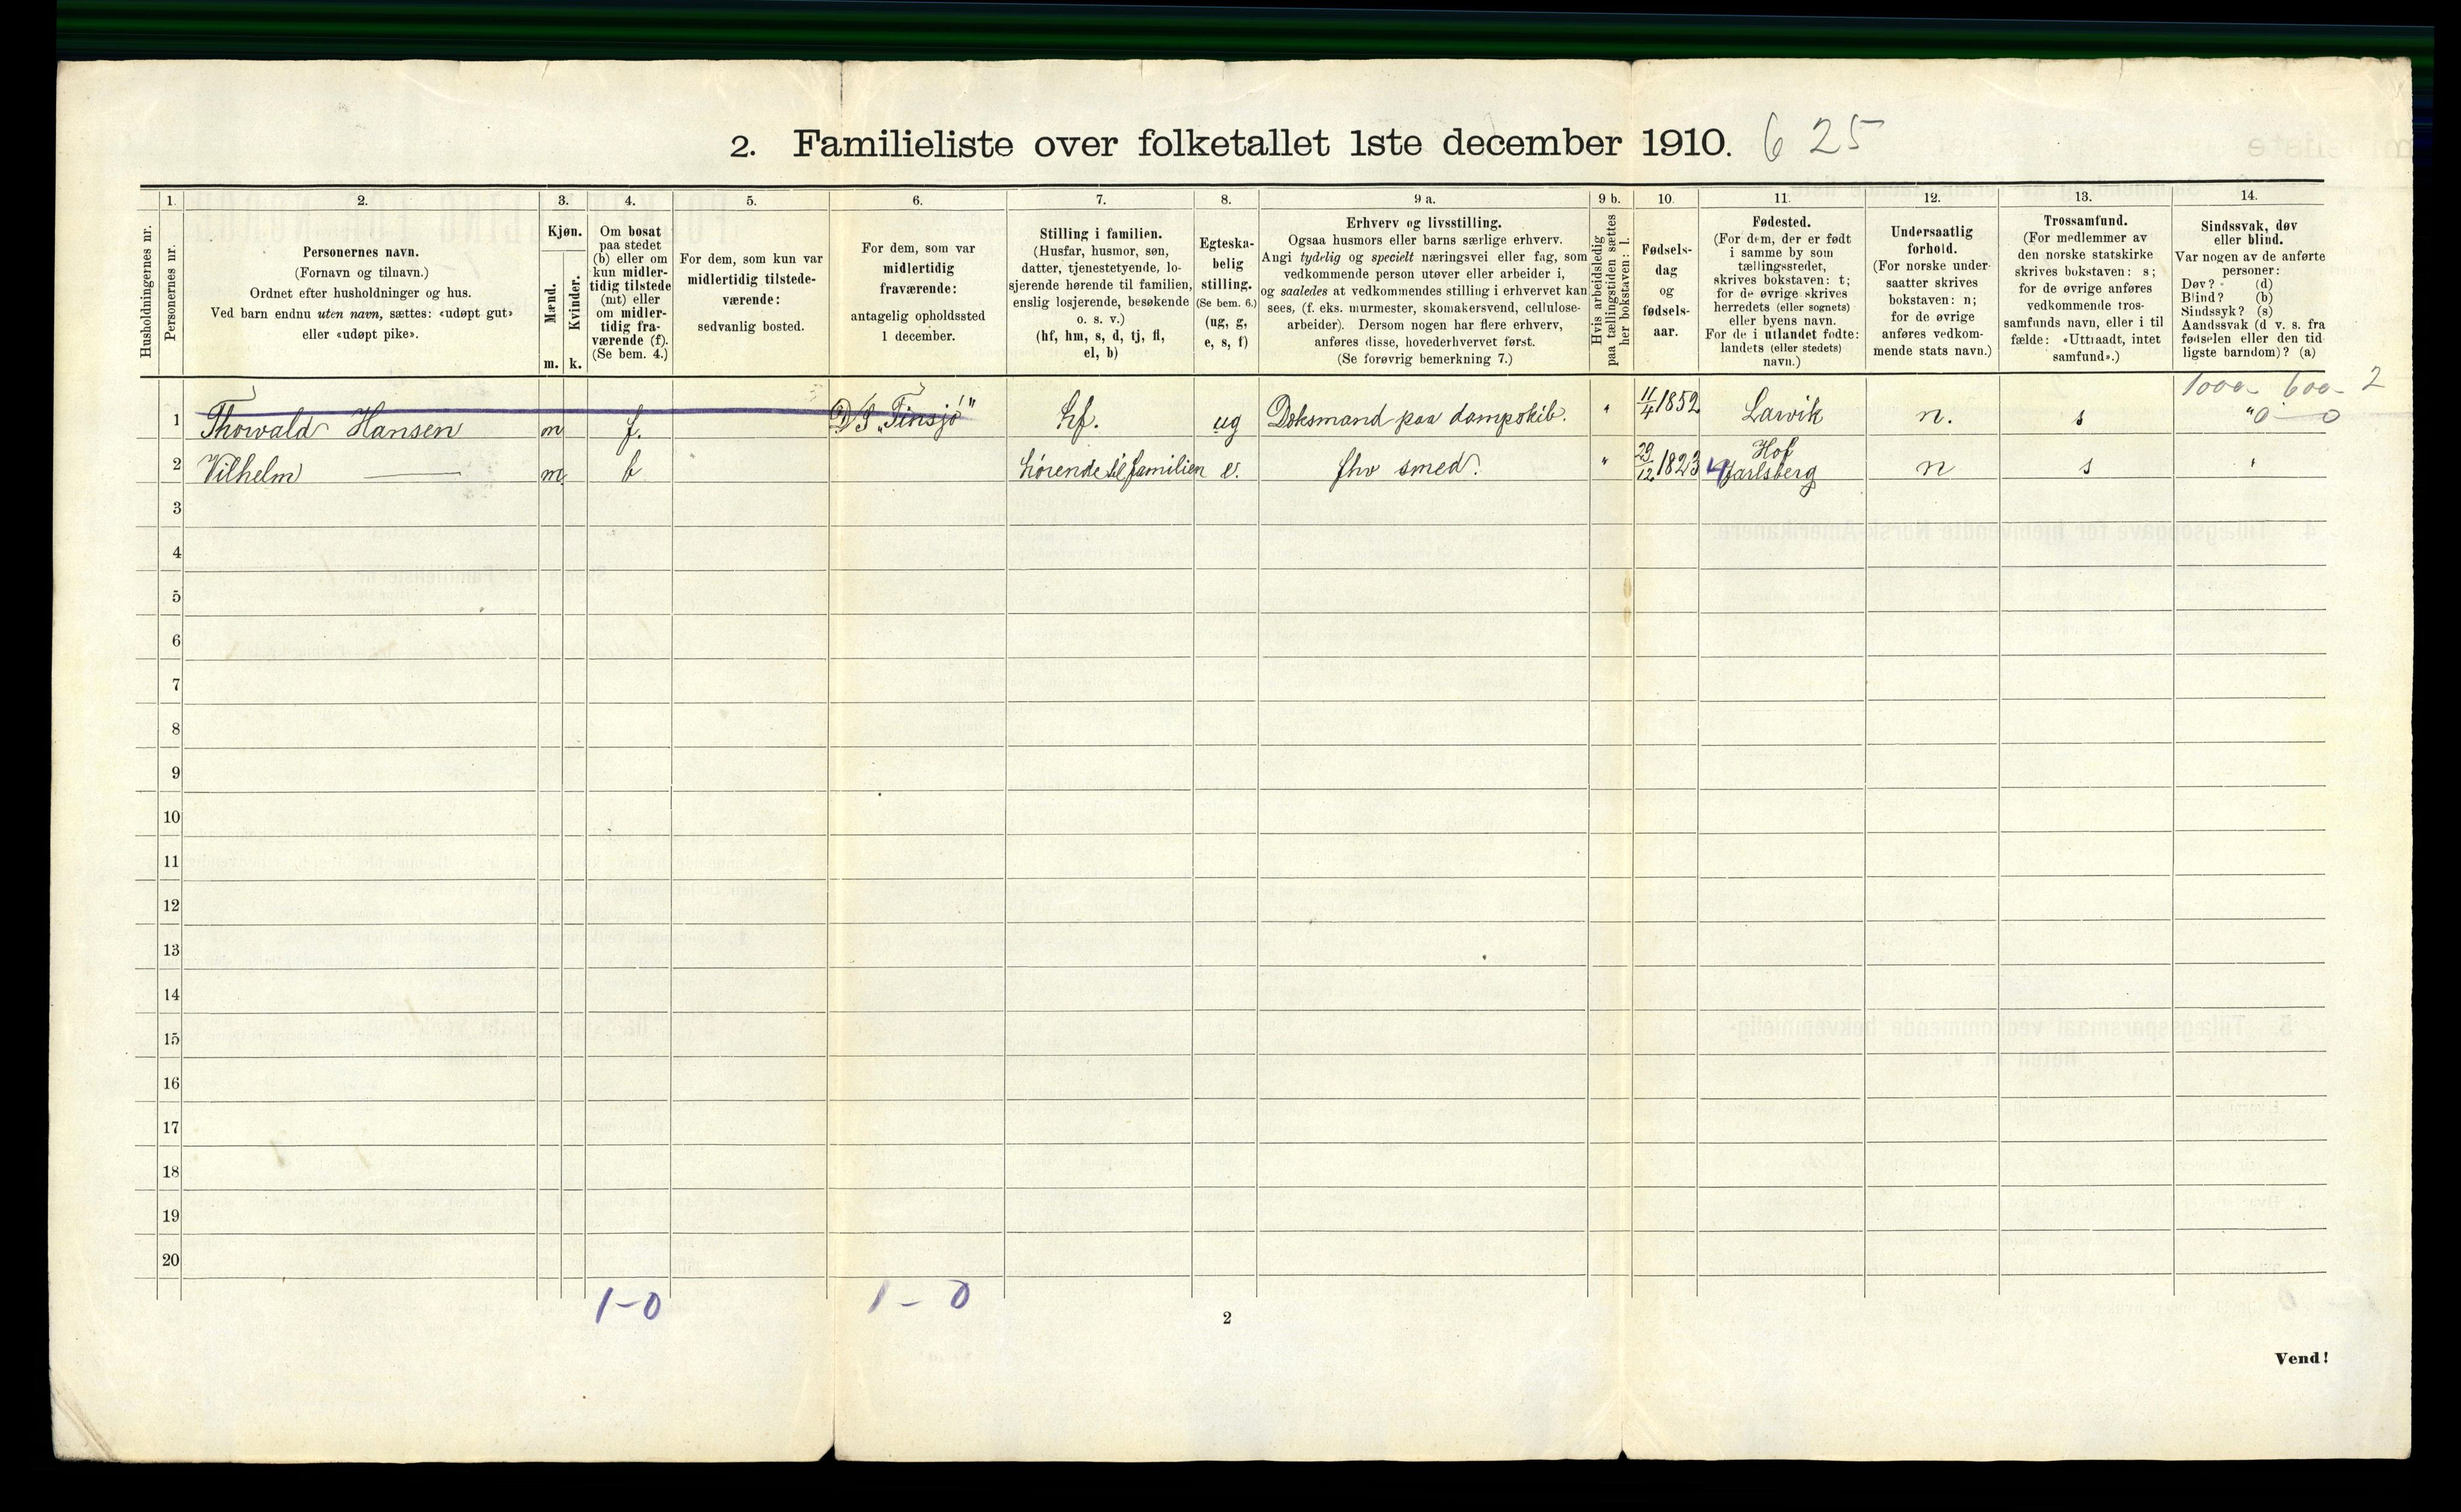 2. Familieliste over folketallet 1ste december 1910. 625
Husholdningernes nr.
1.
Personernes nr.
2.
Personernes navn.
(Fornavn og tilnavn.)
Ordnet efter husholdninger og hus.
Ved barn endnu uten navn, sættes: «udøpt gut»
eller «udøpt pike».
3.
Kjøn.
Mænd.
m.
Kvinder.
k.
4.
Om bosat
paa stedet
(b) eller om
kun midler-
tidig tilstede
(mt) eller
om midler-
tidig fra-
værende (f).
(Se bem. 4.)
5.
For dem, som kun var
midlertidig tilstede-
værende:
sedvanlig bosted.
6.
For dem, som var
midlertidig
fraværende:
antagelig opholdssted
1 december.
7.
Stilling i familien.
(Husfar, husmor, søn,
datter, tjenestetyende, lo-
sjerende hørende til familien,
enslig losjerende, besøkende
o. s. v.)
(hf, hm, s, d, tj, fl,
el, b)
8.
Egteska-
belig
stilling.
(Se bem. 6.)
(ug, g,
e, s, f)
9 a.
Erhverv og livsstilling.
Ogsaa husmors eller barns særlige erhverv.
Angi tydelig og specielt næringsvei eller fag, som
vedkommende person utøver eller arbeider i,
og saaledes at vedkommendes stilling i erhvervet kan
sees, (f. eks. murmester, skomakersvend, cellulose-
arbeider). Dersom nogen har flere erhverv,
anføres disse, hovederhvervet først.
(Se forøvrig bemerkning 7.)
9 b.
Hvis arbeidsledig
paa tællingstiden sættes
her bokstaven: l.
10.
Fødsels-
dag
og
fødsels-
aar.
11.
Fødested.
(For dem, der er født
i samme by som
tællingsstedet,
skrives bokstaven: t;
for de øvrige skrives
herredets (eller sognets)
eller byens navn.
For de i utlandet fødte:
landets (eller stedets)
navn.)
12.
Undersaatlig
forhold.
(For norske under-
saatter skrives
bokstaven: n;
for de øvrige
anføres vedkom-
mende stats navn.)
13.
Trossamfund.
(For medlemmer av
den norske statskirke
skrives bokstaven: s;
for de øvrige anføres
vedkommende tros-
samfunds navn, eller i til
fælde: «Uttraadt, intet
samfund».)
14.
Sindssvak, døv
eller blind.
Var nogen av de anførte
personer:
Døv? (d)
Blind? (b)
Sindssyk? (s)
Aandssvak (d v. s. fra
fødselen eller den tid
ligste barndom)? (a)
1000- 600- 2
1 Thorwald Hansen m f. D/S "Tinsjö" hf. ug Doksmand paa dampskib. " 11/4 1852 Larvik n. s " 0 - 0
2 Vilhelm — m b hörende til familien e. fhv smed. " 29/12 1823 Hof Jarlsberg n s "
3
4
5
6
7
8
9
10
11
12
13
14
15
16
17
18
19
20
1-0 1-0
2
Vend!